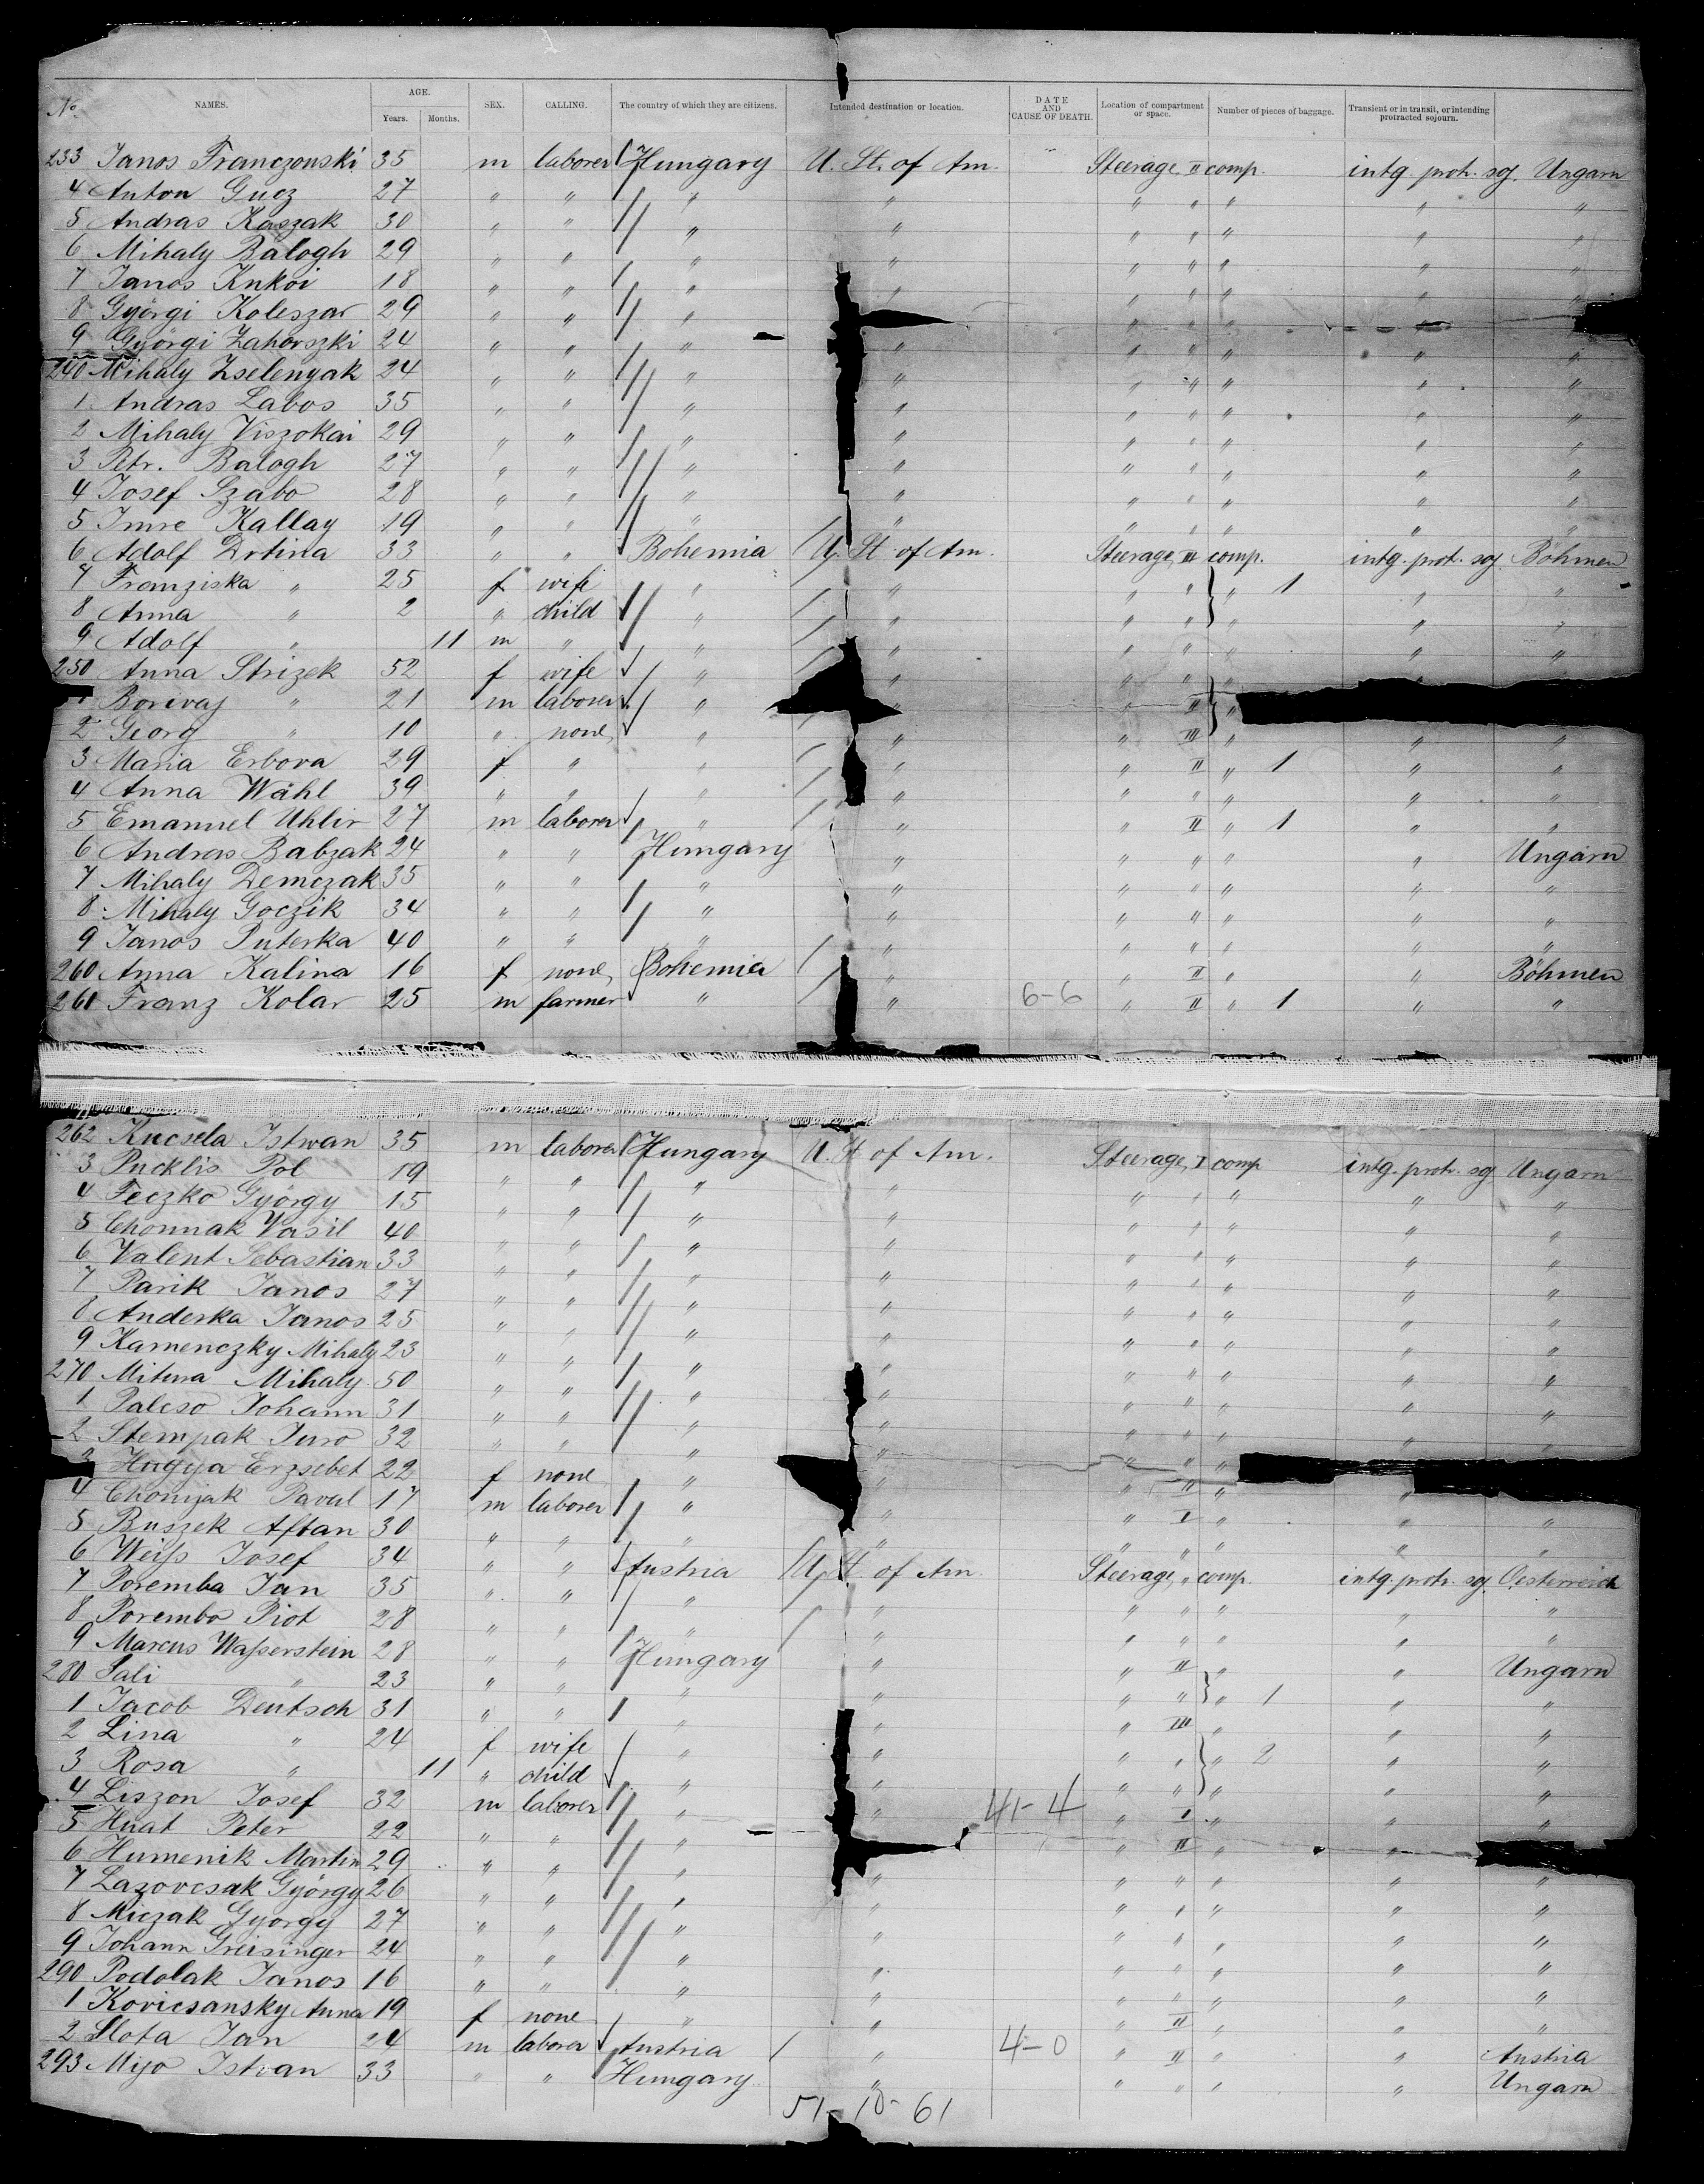 No. NAMES. AGE. Years. Months. SEX. CALLING. The country of which they are citizens. Intended destination or location. DATE AND CAUSE OF DEATH. Location of compartment or space. Number of pieces of baggage. Transient or in transit, or intending protracted sojourn.
233 Janos Franczonski 35 m laborer Hungary U. St. of Am. Steerage II comp. intg. protr. soj. Ungarn
4 Anton Gucz 27 " " " " " " " " "
5 Andras Kaszak 30 " " " " " " " " "
6 Mihaly Balogh 29 " " " " " " " " "
7 Janos Knkoi 18 " " " " " " " " "
8 Györgi Koleszar 29 " " " " " " " " "
9 Györgi Zahorszki 24 " " " " " " " " "
240 Mihaly Zselenyak 24 " " " " " " " " "
1 Andras Labos 35 " " " " " " " " "
2 Mihaly Viszokai 29 " " " " " " " " "
3 Petr. Balogh 27 " " " " " " " " "
4 Josef Szabo 28 " " " " " " " " "
5 Imre Kallay 19 " " " " " " " " "
6 Adolf Drtina 33 " " Bohemia U. St. of Am. Steerage, III comp. intg. prot. soj. Böhmen
7 Franziska " 25 f wife " " " " " 1 " "
8 Anna " 2 " child " " " " " " "
9 Adolf " 11 m " " " " " " " "
250 Anna Strizek 52 f wife " " " " " "
1 Borivaj " 21 m laborer " " " II "
2 Georg " 10 " none " " " III " " "
3 Maria Erbova 29 f " " " " II " 1 " "
4 Anna Wähl 39 " " " " " " " " "
5 Emanuel Uhlir 27 m laborer " " " II " 1 " "
6 Andras Babzak 24 " " Hungary " " " " " Ungarn
7 Mihaly Demczak 35 " " " " " " " " "
8 Mihaly Goczik 34 " " " " " " " " "
9 Janos Puterka 40 " " " " " " " " "
260 Anna Kalina 16 f none Bohemia " " II " " Böhmen
261 Franz Kolar 25 m farmer " " 6-6 " II " 1 " "
262 Kucsela Istwan 35 m laborer Hungary U. St of Am. Steerage, I comp intg. protr. soj Ungarn
3 Pucklis Pol 19 " " " " " " " " "
4 Feczko György 15 " " " " " " " " "
5 Chonnak Vasil 40 " " " " " " " " "
6 Valent Sebastian 33 " " " " " " " " "
7 Parik Janos 27 " " " " " " " " "
8 Anderka Janos 25 " " " " " " " " "
9 Kamenczky Mihaly 23 " " " " " " " " "
270 Mitura Mihaly 50 " " " " " " " " "
1 Palcso Johann 31 " " " " " " " " "
2 Stempak Juro 32 " " " " " " " " "
3 Hagya Erzsebet 22 f none " " " " "
4 Chonijak Paval 17 m laborer " " " II " "
5 Buszek Aftan 30 " " " " " I " " "
6 Weiss Josef 34 " " Austria U. St. of Am. Steerage, " comp. intg. protr. soj. Oesterreich
7 Poremba Jan 35 " " " " " " " " "
8 Porembo Piot 28 " " " " " " " " "
9 Marcus Wasserstein 28 " " Hungary " " II " " Ungarn
280 Sali " 23 " " " " " " " 1 " "
1 Jacob Deutsch 31 " " " " " III " " "
2 Lina " 24 f wife " " " " " 2 " "
3 Rosa " 11 " child " " " " " " "
4 Liszon Josef 32 m laborer " " 41-4 " I " " "
5 Huat Peter 22 " " " " " II " "
6 Humenik Martin 29 " " " " " " " " "
7 Lazovcsak György 26 " " " " " " " " "
8 Miczak György 27 " " " " " " " " "
9 Johann Greisinger 24 " " " " " " " " "
290 Podolak Janos 16 " " " " " " " " "
1 Kovicsansky Anna 19 f none " " " II " " "
2 Slota Jan 24 m laborer Austria " 4-0 " II " " Austria
293 Mijo Istvan 33 " " Hungary " " " " " Ungarn
51-10-61